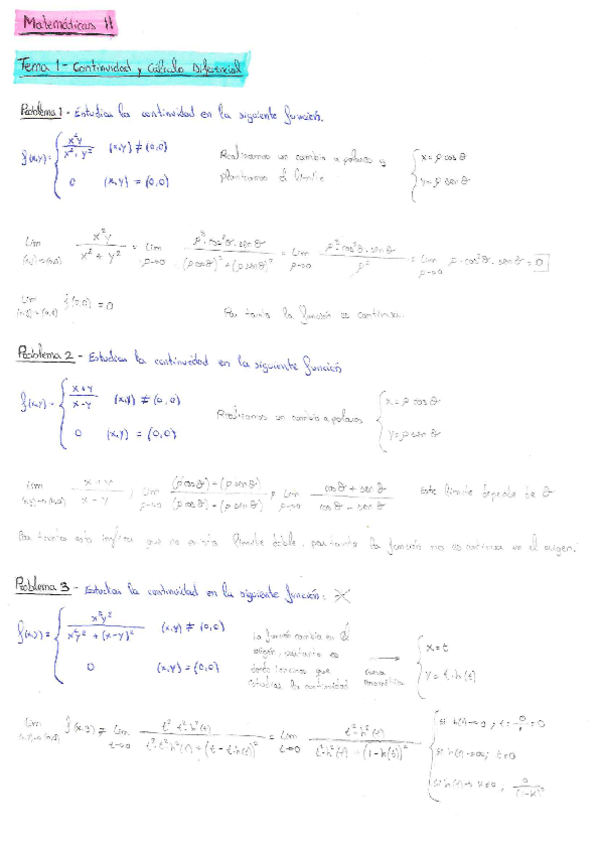 Matemáticas II
Tema 1 - Continuidad y Cálculo Diferencial
Problema 1 - Estudiar la continuidad en la siguiente función.
f(x,y) = { x²y / (x² + y²) (x,y) ≠ (0,0)
0 (x,y) = (0,0)
Realizamos un cambio a polares y
planteamos el límite
{ x = ρ cos θ
y = ρ sen θ
Lim (x,y)→(0,0) x²y / (x² + y²) = Lim ρ→0 ρ³·cos²θ·sen θ / ((ρ cos θ)² + (ρ sen θ)²) = Lim ρ→0 ρ³·cos²θ·sen θ / ρ² = Lim ρ→0 ρ·cos²θ·sen θ = 0
Lim (x,y)→(0,0) f(0,0) = 0 Por tanto la función es continua.
Problema 2 - Estudiar la continuidad en la siguiente función
f(x,y) = { (x + y) / (x - y) (x,y) ≠ (0,0)
0 (x,y) = (0,0)
Realizamos un cambio a polares
{ x = ρ cos θ
y = ρ sen θ
Lim (x,y)→(0,0) (x + y) / (x - y) = Lim ρ→0 ((ρ cos θ) + (ρ sen θ)) / ((ρ cos θ) - (ρ sen θ)) = Lim ρ→0 (cos θ + sen θ) / (cos θ - sen θ) Este límite depende de θ
Por tanto esto implica que no existe límite doble, por tanto la función no es continua en el origen.
Problema 3 - Estudiar la continuidad en la siguiente función:
f(x,y) = { x²y² / (x²y² + (x-y)²) (x,y) ≠ (0,0)
0 (x,y) = (0,0)
La función cambia en el
origen, por tanto es
donde tenemos que
estudiar la continuidad
→
{ x = t
y = t·h(t)
Lim (x,y)→(0,0) f(x,y) = Lim t→0 t²·t²·h²(t) / (t²·t²h²(t) + (t - t·h(t))²) = Lim t→0 t²·h²(t) / (t²·h²(t) + (1-h(t))²)